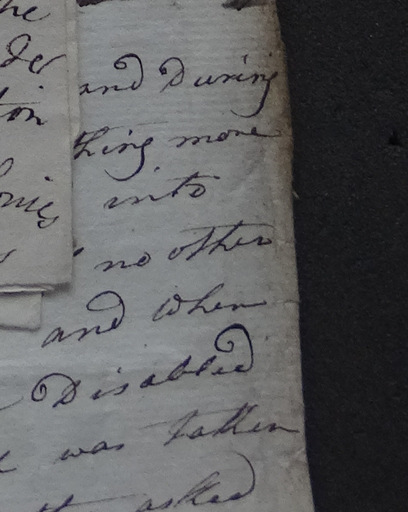 he
and During
thing more
into
no other
and when
Disabled
was taken
asked